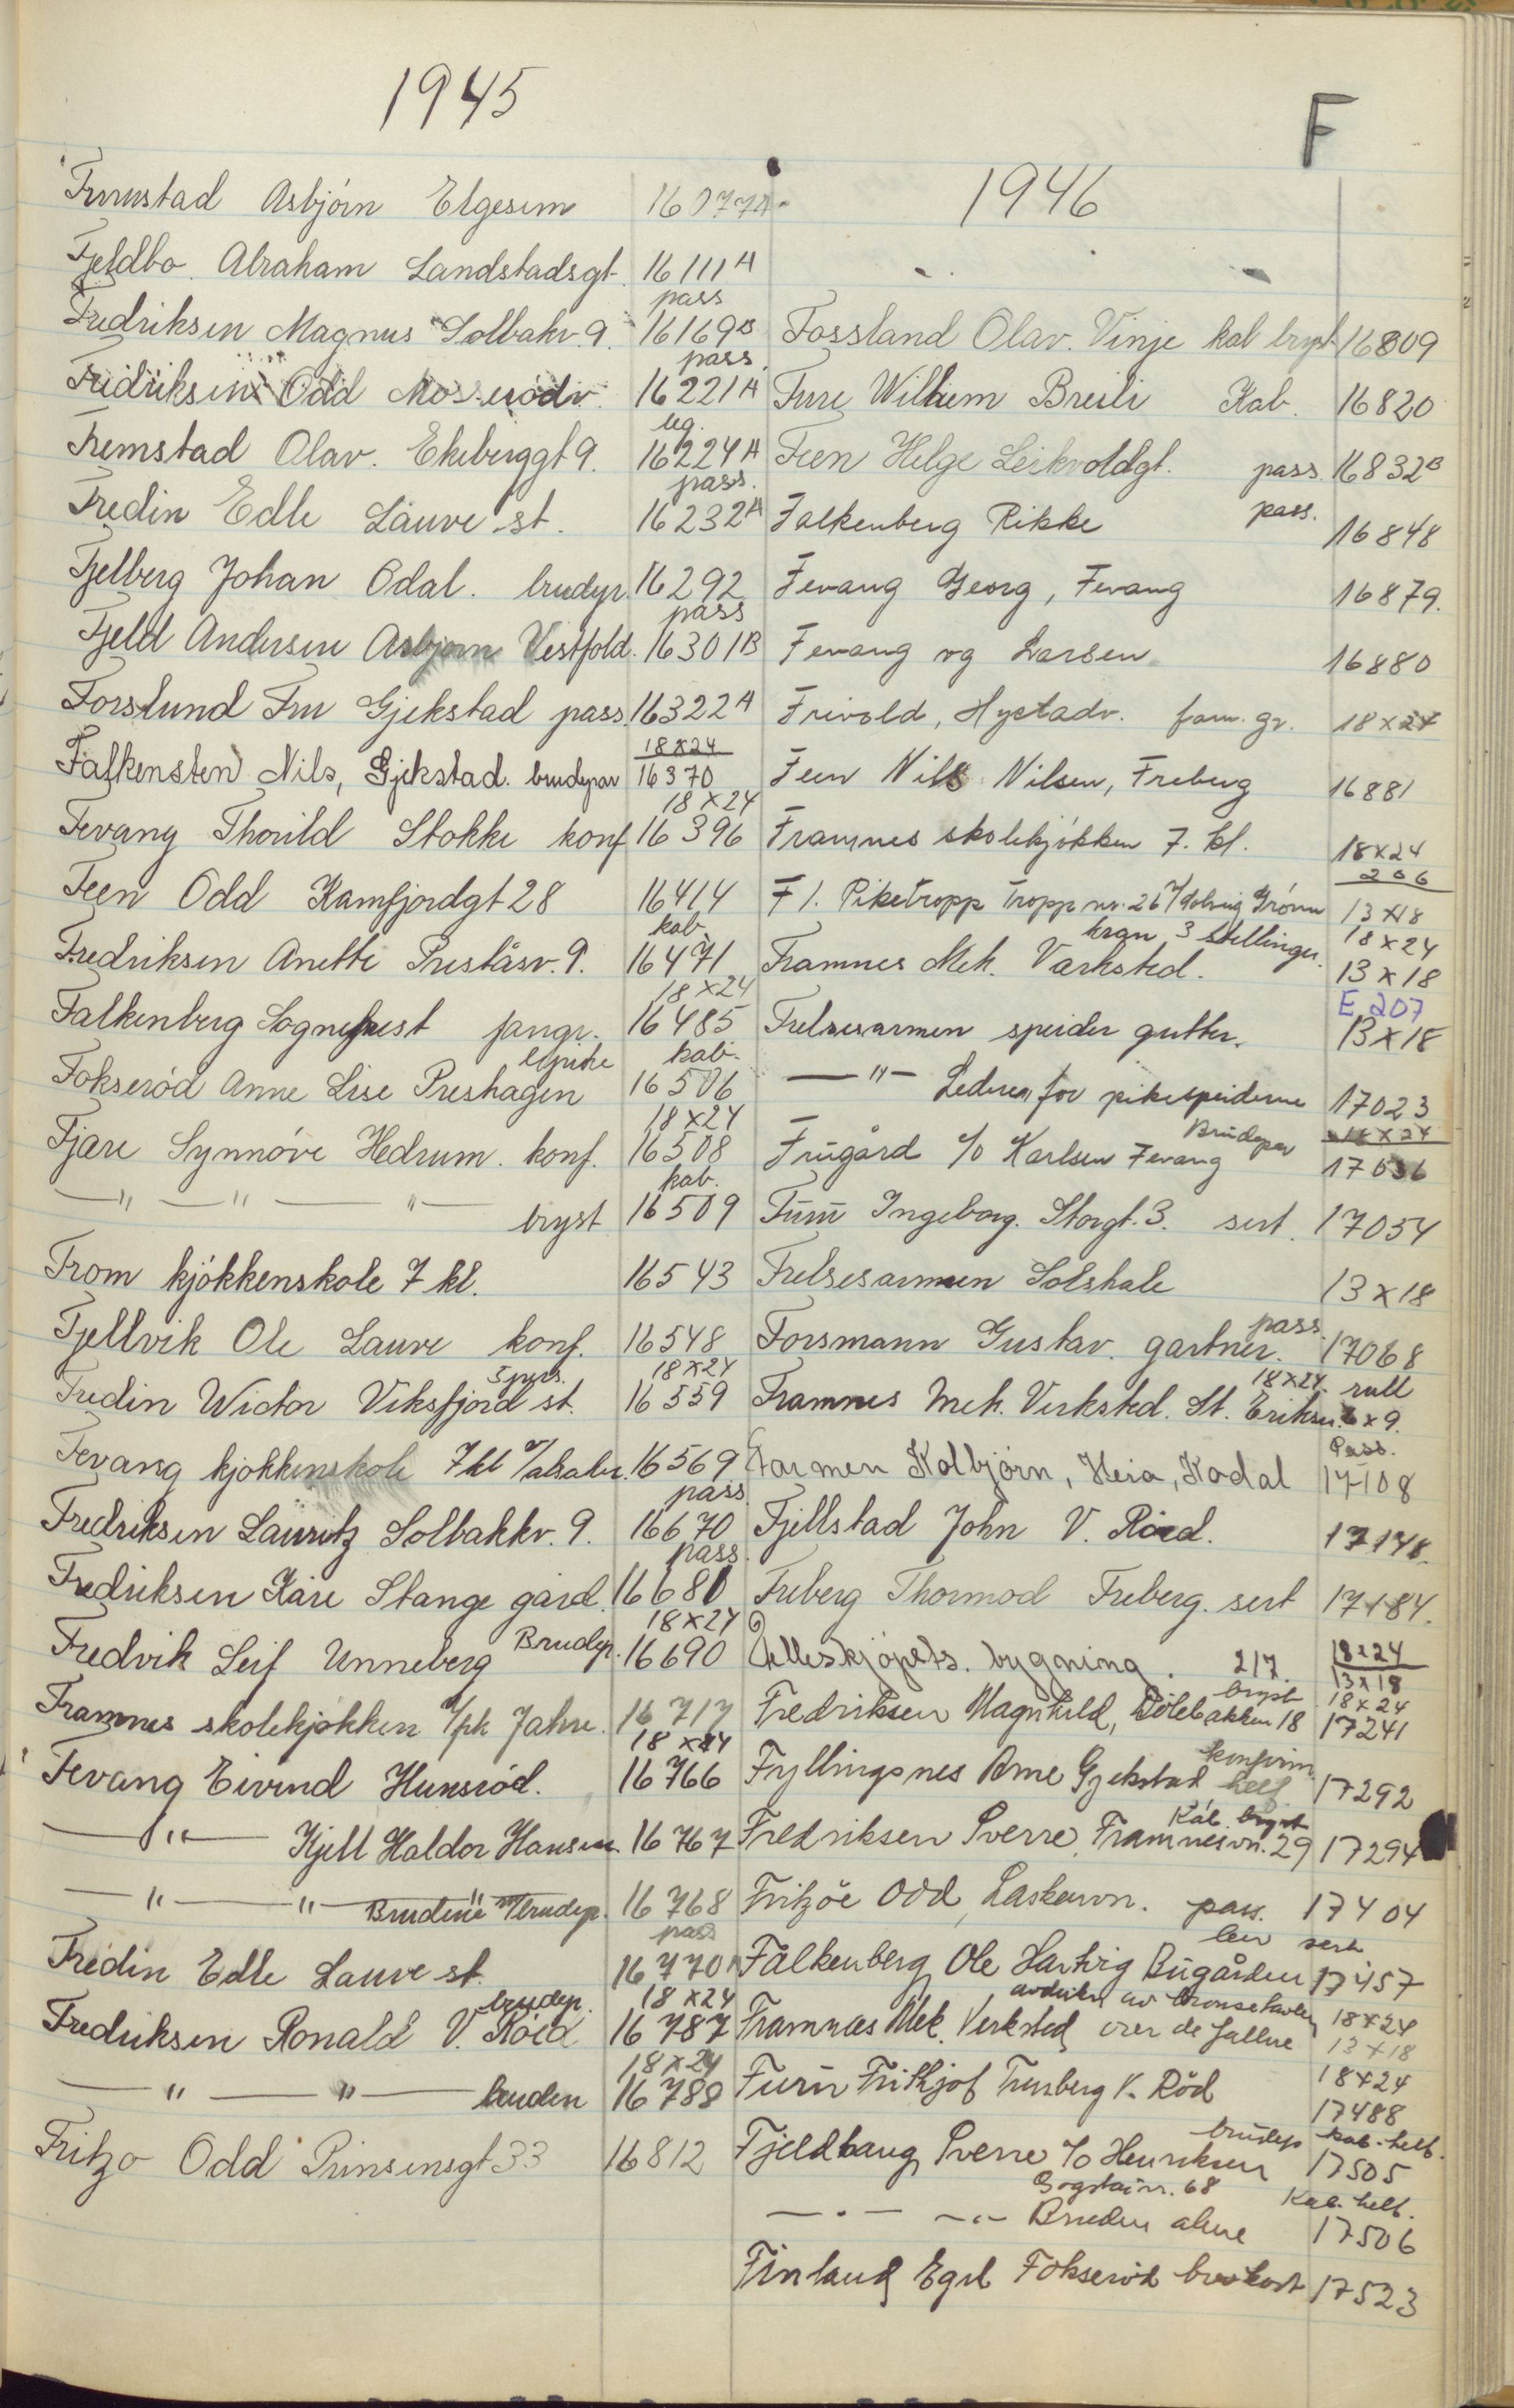 1945
F
Furustad Asbjörn Elgesem 16077A
Fjeldbo Abraham Landstadsgt. 16111A
pass
Fredriksen Magnus Solbakv. 9. 16169B
pass.
Fredriksen Odd Mosserödv. 16221A
leg.
Fremstad Olav. Ekeberggt 9. 16224A
pass.
Fredin Edle Lauve st. 16232A
Fjelberg Johan Odal. brudepr. 16292
pass
Fjeld Andersen Asbjørn Vestfold. 16301B
Forslund Fru Gjekstad pass 16322A
18x24
Falkensten Nils, Gjekstad. brudepar 16370
18x24
Fevang Thorild Stokke konf 16396
Feen Odd Kamfjordgt 28 16414
kab.
Fredriksen Anette Preståsv. 9. 16471
18x24
Falkenberg Sogneprest fangr. 16485
kab.
Fokseröd Anne Lise Preshagen 16506
18x24
Fjære Synnöve Hedrum. konf. 16508
kab.
—"— —"— —"— bryst 16509
From kjökkenskole 7 kl. 16543
Fjellvik Ole Lauve konf. 16548
5 pers. 18x24
Fredin Wictor Viksfjord st. 16559
Fevang kjökkenskole 7 kl 16569
pass
Fredriksen Lauritz Solbakkv. 9. 16670
pass.
Fredriksen Kåre Stange gård. 16680
18x24
Fredvik Leif Unneberg Brudep. 16690
Framnes skolekjökken v/frk Jahre. 16717
18x24
Fevang Eivind Hunsröd. 16766
—"— Kjell Haldor Hansen 16767
—"— —"— Brudene m/brudep. 16768
pass
Fredin Edle Lauve st. 16770A
brudep. 18x24
Fredriksen Ronald V. Röed 16787
18x24
—"— —"— bruden 16788
Fritzo Odd Prinsensgt 33 16812
1946
Fossland Olav. Vinje kab bryst 16809
Fure Wilhem Breili Kab. 16820
Feen Helge Leikvoldgt. pass. 16832B
pass.
Falkenberg Rikke 16848
Fevang Georg, Fevang 16879.
Fevang og Larsen 16880
Frivold, Hystadv. fam. gr. 18x24
Feen Nils Nilsen, Freberg 16881
Framnes skolekjökken 7. kl. 18x24
206
F 1. Piketropp Tropp nr. 26 v/Solveig Grönn 13x18
kran 3 stellinger. 18x24
Framnes Mek. Værksted. 13x18
E 207
Frelsesarmen speider gutter. 13x18
—"— Lederen for pikespeiderne 17023
Brudepar 18x24
Frugård c/o Karlsen Fevang 17036
Furu Ingeborg. Storgt. 3. sert. 17054
Frelsesarmeen Solshale 13x18
pass.
Forsmann Gustav. gartner. 17068
18x24. rull
Framnes Mek. Verksted. St. Eriksen. 6x9.
Pass.
Farmen Kolbjörn, Heia, Kodal 17108
Fjellstad John V. Röed. 17148.
Freberg Thormod Freberg. sert 17184.
Felleskjöpets. bygning. 217. 18x24
13x18
bryst 18x24
Fredriksen Magnhild, Dölebakken 18 17241
konfirm.
Fryllingsnes Arne Gjekstad helf. 17292
Kab. bryst
Fredriksen Sverre, Framnesvn. 29 17294
Fritzöe Odd, Laskenvn. pass. 17404
sert
Falkenberg, Ole Hartvig Bugården 17457
av bronsetavlen 18x24
Framnæs Mek. Verksted over de falne 13x18
18x24
Furu Frithjof Freberg V. Röd 17488
brudep kab. helf.
Fjeldhaug, Sverre c/o Henriksen 17505
68 Kab. helf.
— " — —"— Bruden alene 17506
Finland Egil Fokseröd 17523